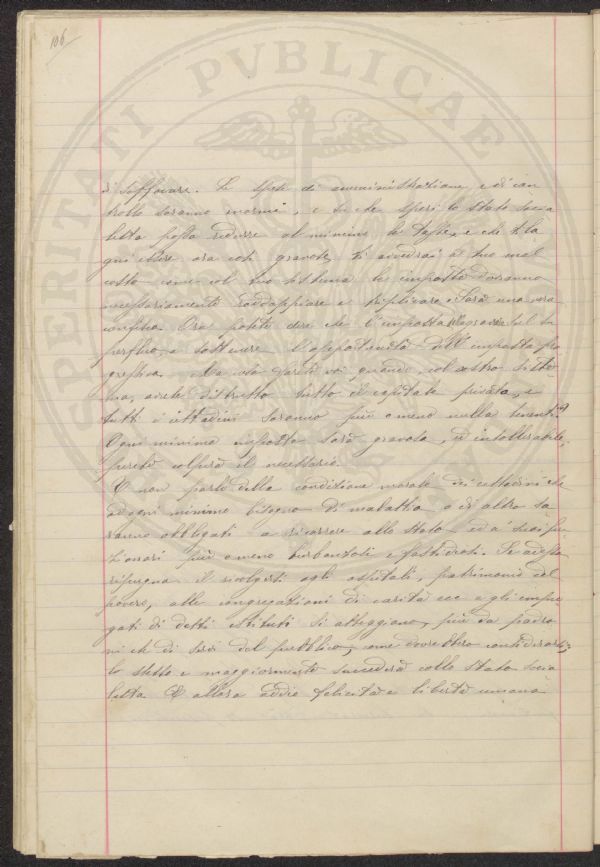 106
di soffocare. Le spese di amministrazione e di con
trollo saranno enormi, e tu che speri lo stato socia
lista possa ridurre al minimo le tasse, e che ti la
gni essere ora così gravate, ti avvedrai a tuo mal
costo come col tuo sistema le imposte dovranno
necessariamente raddoppiare e triplicare. Sarà una vera
confisca. Ora potete dire che l'imposta sul su
perfluo, e sostenere l'opportunità dell'imposta pro
gressiva. Ma cosa farete voi, quando, col vostro siste
ma, avrete distrutto tutto il capitale privato, e
tutti i cittadini saranno più o meno nulla tenenti?
Ogni minima imposta sarà gravosa, ed intollerabile,
perché colpirà il necessario.
E non parlo della condizione morale dei cittadini che
ad ogni minimo bisogno di malattia o di altro sa
ranno obbligati a ricorrere allo Stato ed a' suoi fun
zionari più o meno burbanzosi e fastidiosi. Se adesso
ripugna il rivolgersi agli ospitali, patrimonio del
povero, alle congregazioni di carità ecc e gli impie
gati di detti istituti si atteggiano, più da padro
ni che di servi del pubblico, come dovrebbero considerarsi,
lo stesso e maggiormente succederà collo Stato socia
lista E allora addio felicità e libertà umana
SPERITATI PVBLICAE